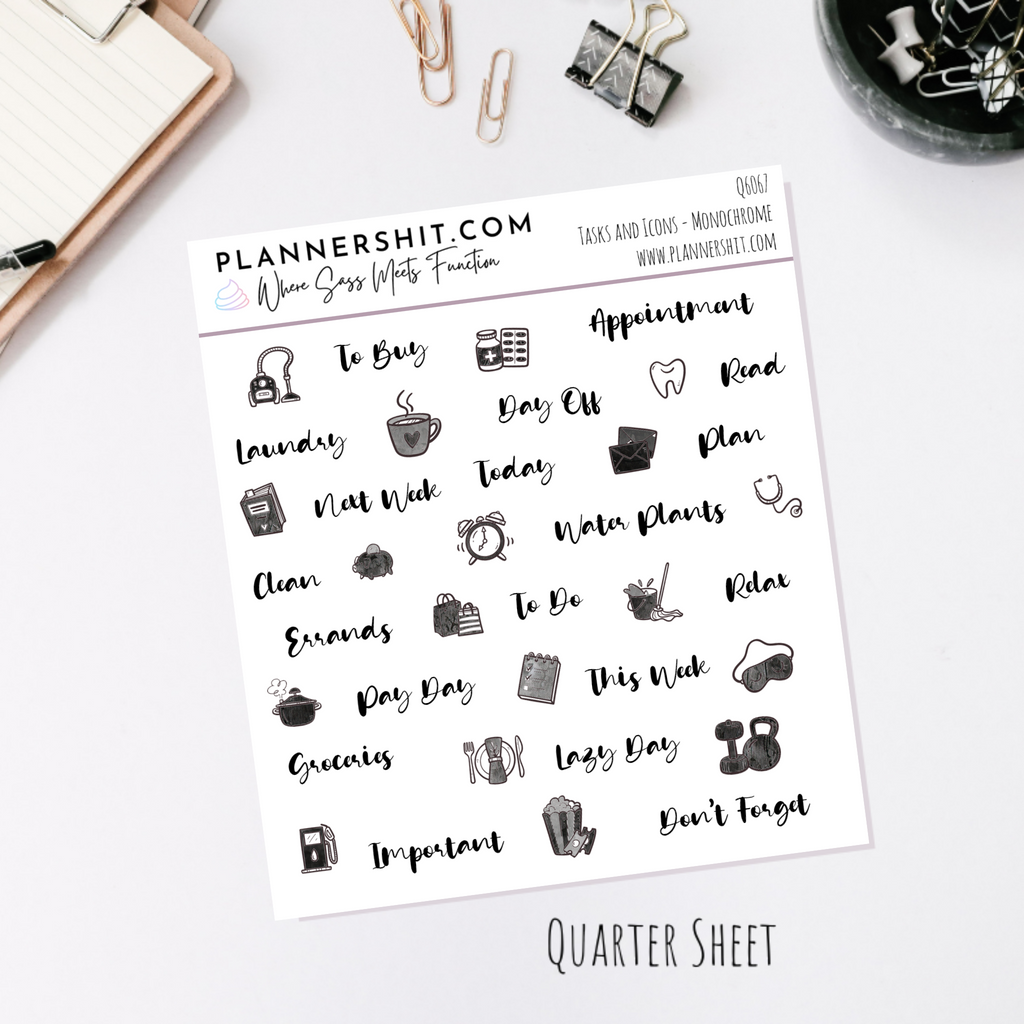 PLANNERSHIT.COM
Where Sass Meets Function
Q6067
Tasks and Icons - Monochrome
www.plannershit.com
To Buy
Appointment
Read
Laundry
Day Off
Plan
Next Week
Today
Water Plants
Clean
Errands
To Do
Relax
Pay Day
This Week
Groceries
Lazy Day
Important
Don't Forget
Quarter Sheet